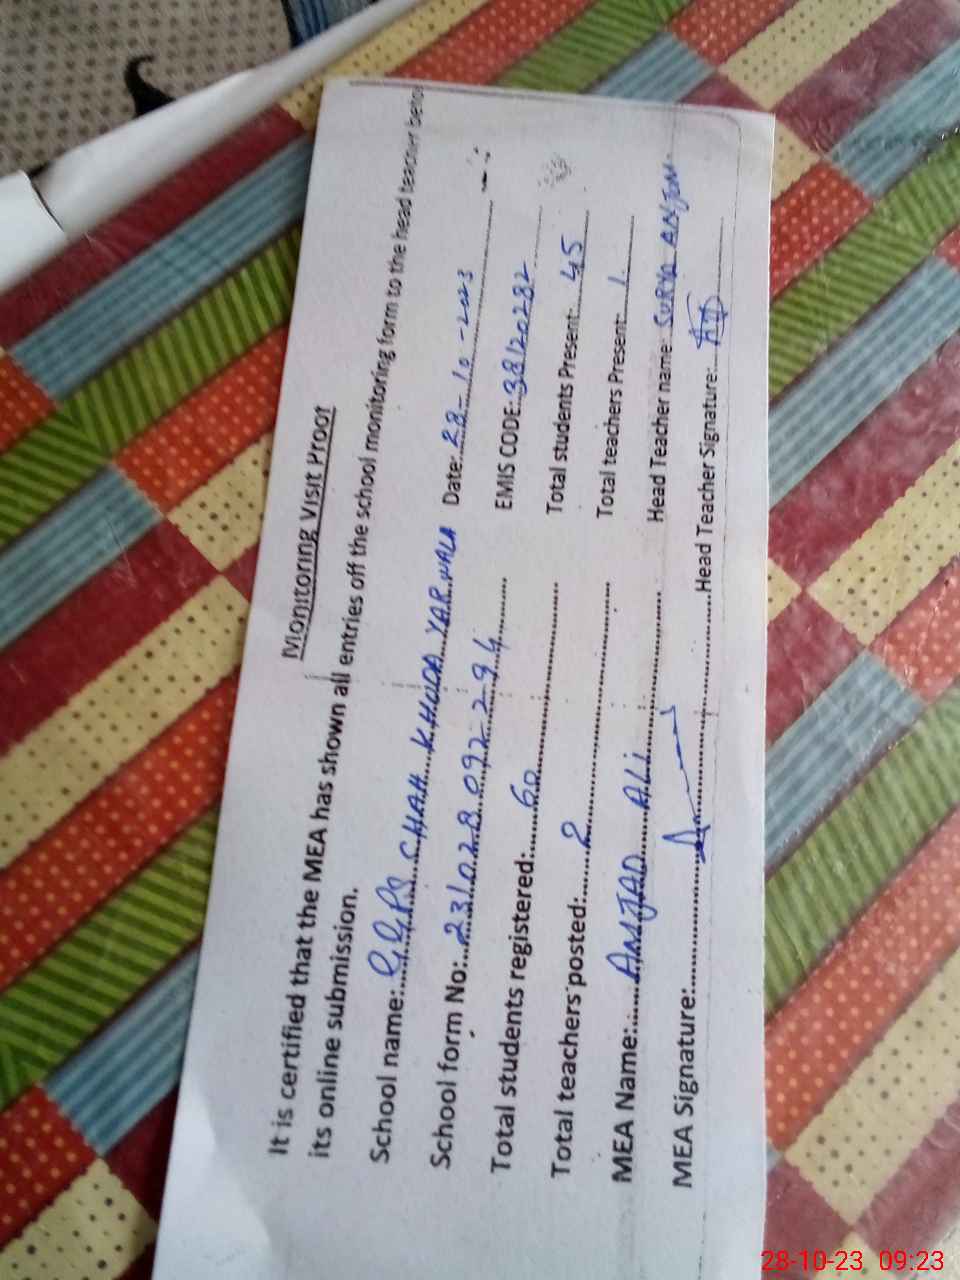 Monitoring Visit Proof
It is certified that the MEA has shown all entries off the school monitoring form to the head teacher befo
its online submission.
School name: GGPS CHAH KHUDA YAR WALA Date: 28-10-2023
School form No: 231028092294 EMIS CODE: 38120282
Total students registered: 60 Total students Present: 45
Total teachers posted: 2 Total teachers Present: 1
MEA Name: AMJAD ALI Head Teacher name: SURYA ANJUM
MEA Signature: Head Teacher Signature:
28-10-23 09:23